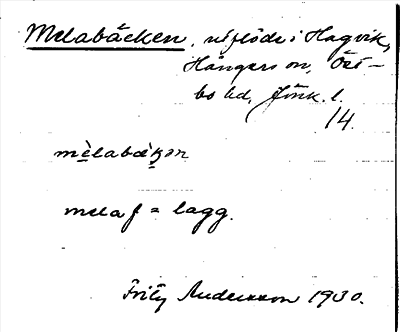 Melabäcken, utflöde i Hagvik,
Hångers sn, Öst-
bo hd, Jönk. l.
14.
mèlabäkən
mela f = lagg.
Fritz Andersson 1930.